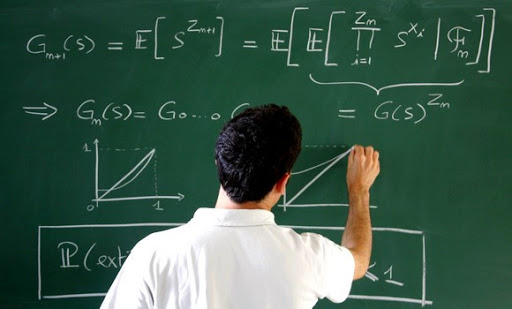 G_{m+1}(s) = 𝔼[s^{Z_{m+1}}] = 𝔼[𝔼[∏_{i=1}^{Z_m} s^{X_i} | ℱ_m]]
⇒ G_m(s) = G∘...∘ = G(s)^{Z_m}
1
0 1
ℙ(ext ≤ 1